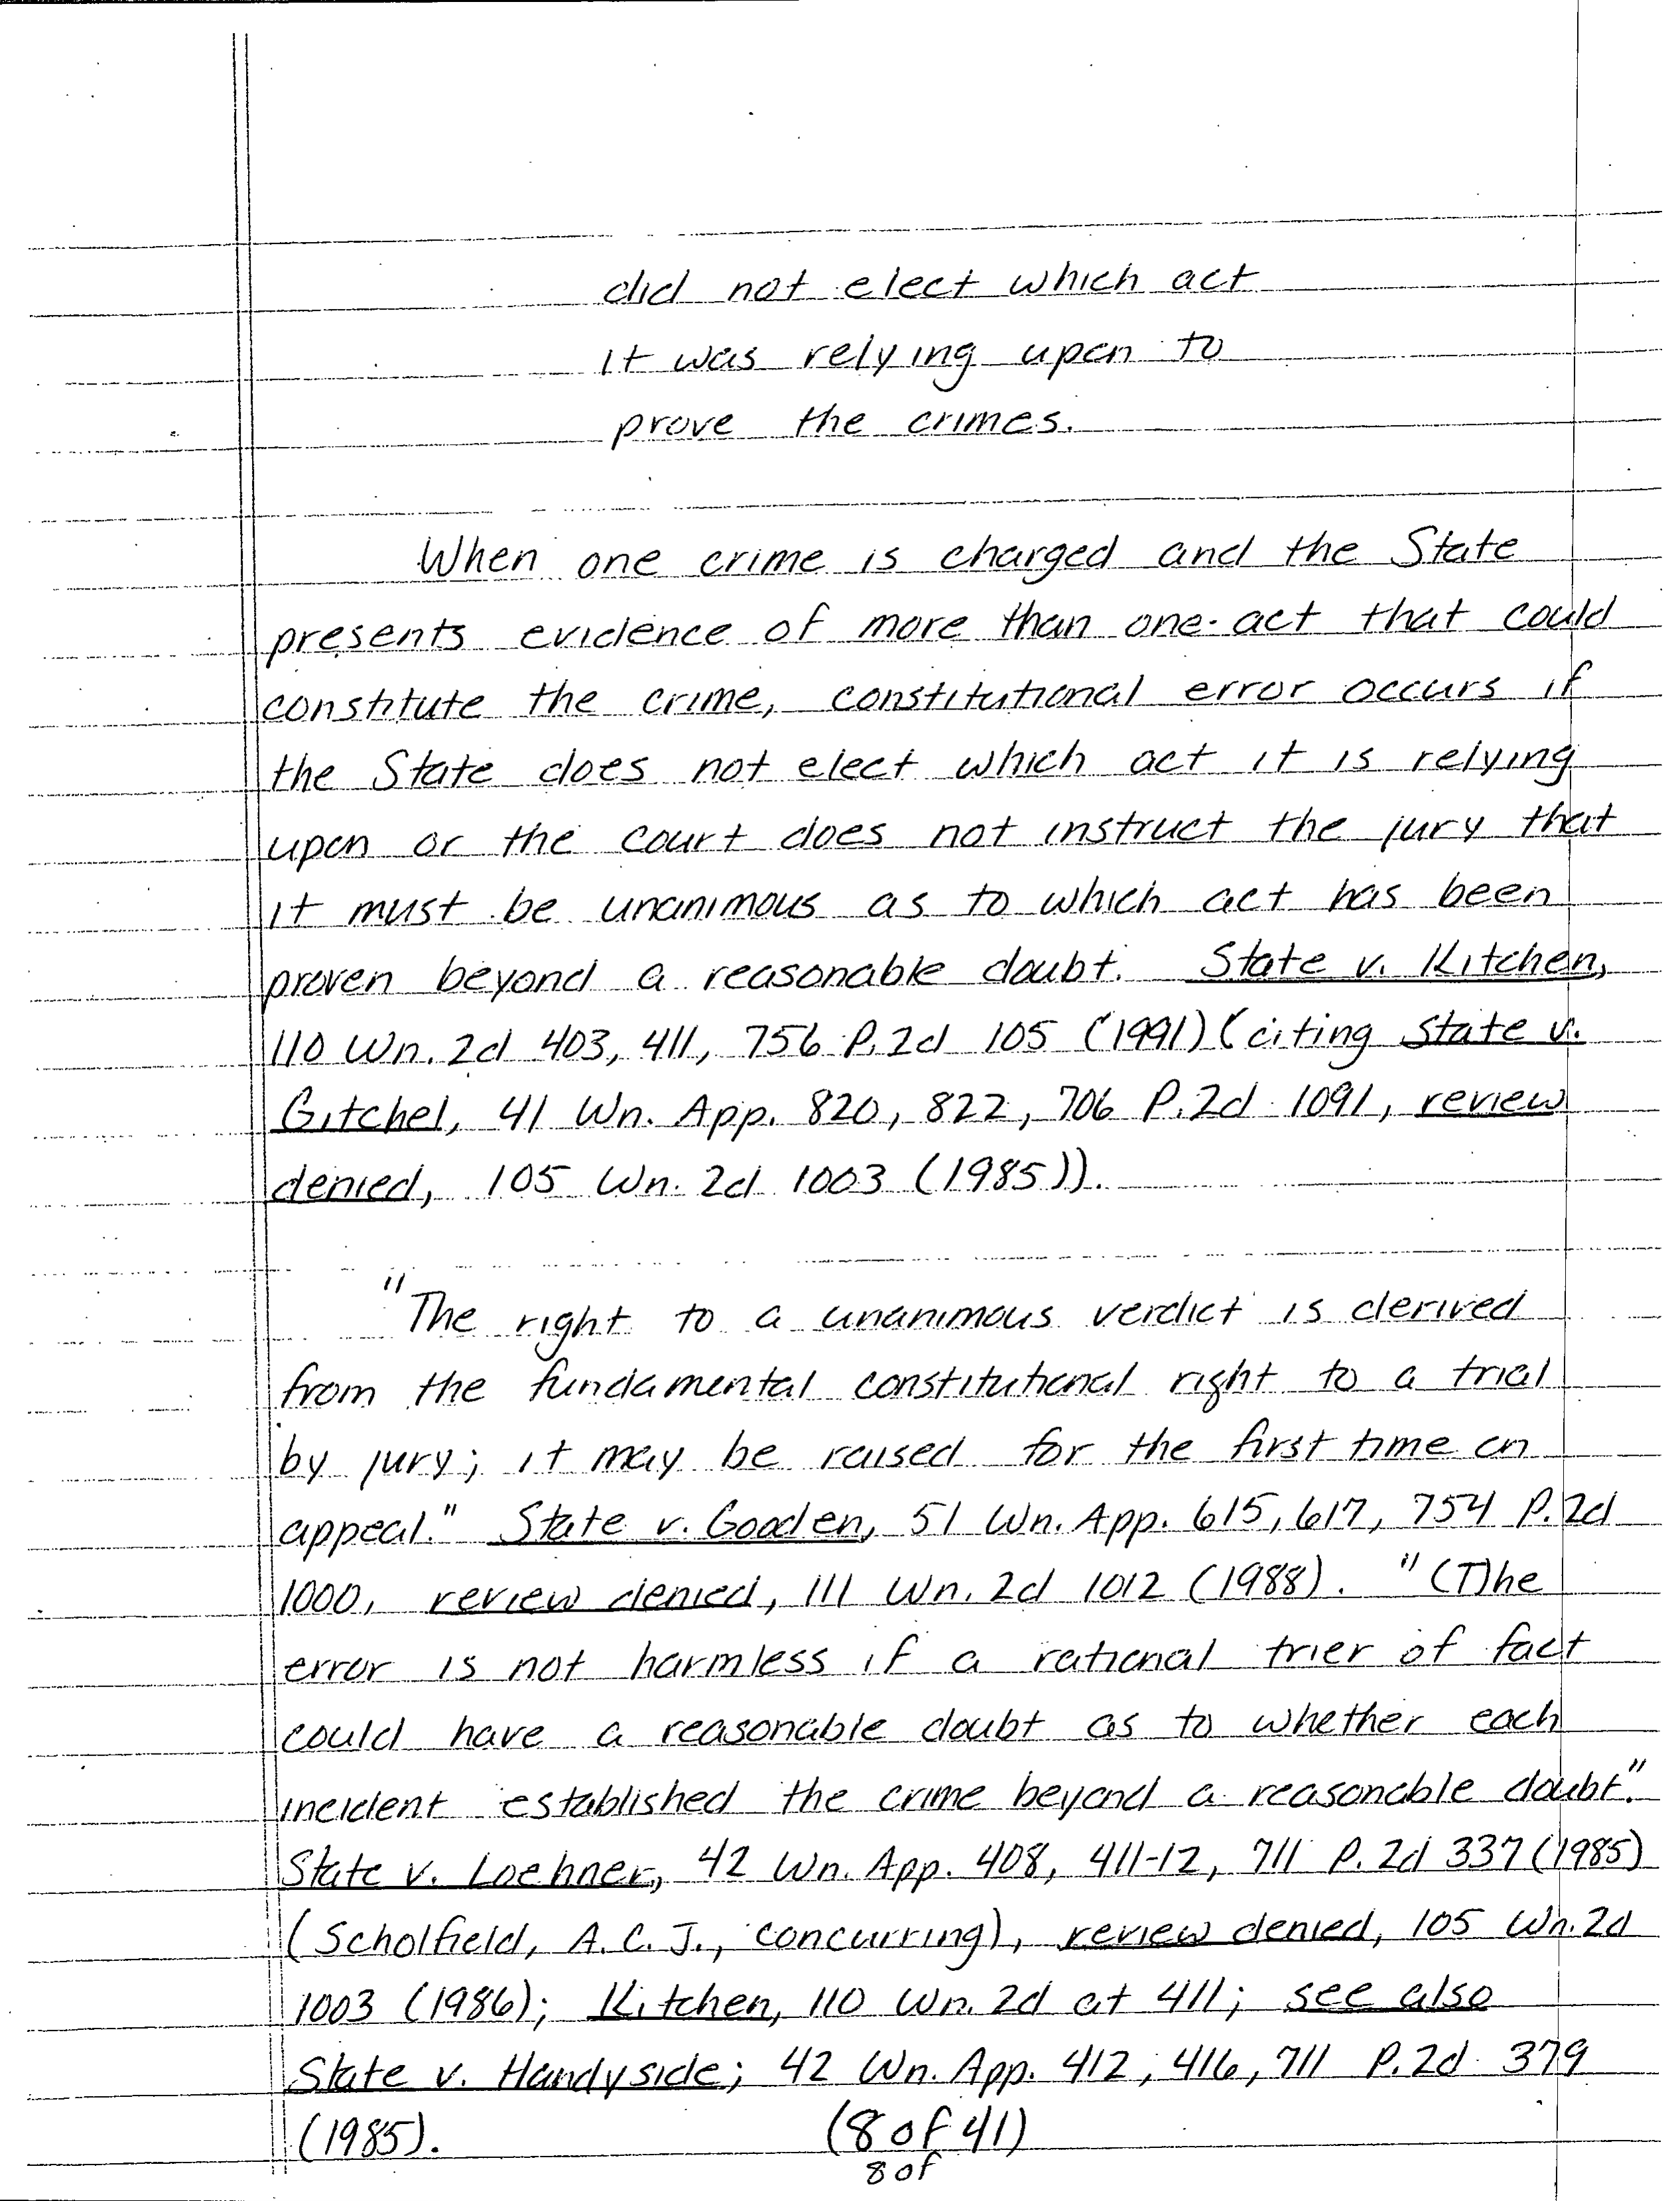 did not elect which act
it was relying upon to
prove the crimes.
When one crime is charged and the State
presents evidence of more than one act that could
constitute the crime, constitutional error occurs if
the State does not elect which act it is relying
upon or the court does not instruct the jury that
it must be unanimous as to which act has been
proven beyond a reasonable doubt. State v. Kitchen,
110 Wn. 2d 403, 411, 756 P.2d 105 (1991) (citing State v.
Gitchel, 41 Wn. App. 820, 822, 706 P.2d 1091, review
denied, 105 Wn. 2d 1003 (1985)).
"The right to a unanimous verdict is derived
from the fundamental constitutional right to a trial
by jury; it may be raised for the first time on
appeal." State v. Gooden, 51 Wn. App. 615, 617, 754 P.2d
1000, review denied, 111 Wn. 2d 1012 (1988). "(T)he
error is not harmless if a rational trier of fact
could have a reasonable doubt as to whether each
incident established the crime beyond a reasonable doubt."
State v. Loehner, 42 Wn. App. 408, 411-12, 711 P.2d 337 (1985)
(Scholfield, A.C.J., concurring), review denied, 105 Wn.2d
1003 (1986); Kitchen, 110 Wn. 2d at 411; see also
State v. Handyside; 42 Wn. App. 412, 416, 711 P.2d 379
(1985). (8 of 41)
8 of